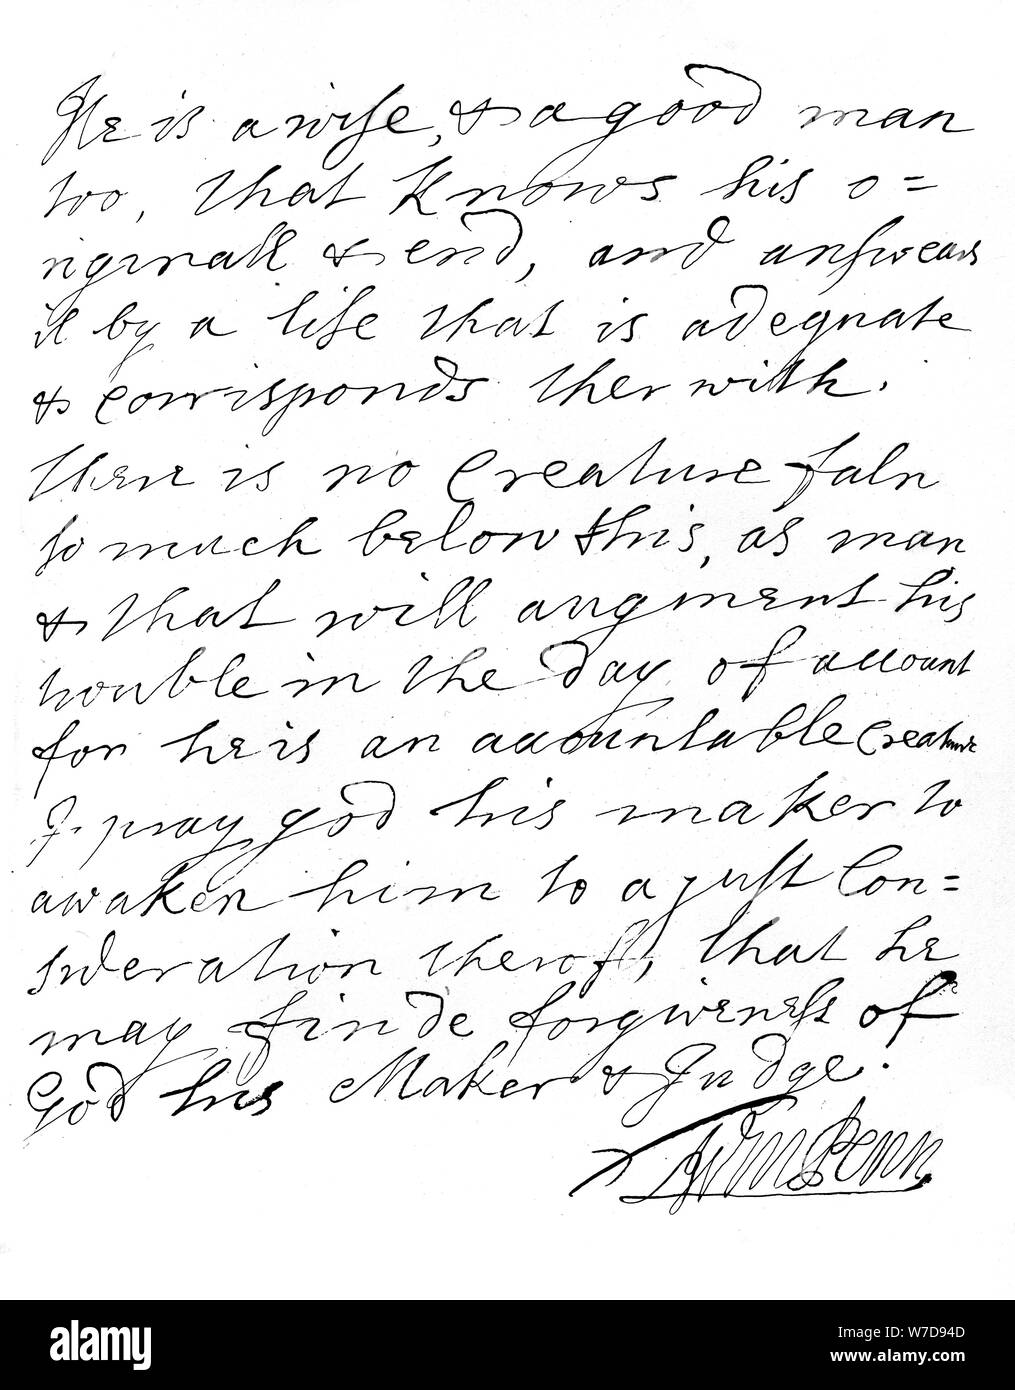 He is a wise, & a good man
too, that knows his o=
riginall & end, and answears
it by a life that is adequate
& corrisponds therwith.
there is no Creature faln
so much below this, as man
& that will augment his
trouble in the day of account
for he is an accountable Creature
I pray god his maker to
awaken him to a just Con=
sideration therof, that he
may finde forgiveness of
God his Maker & Judge.
Wm Penn
alamy
Image ID: W7D94D
www.alamy.com